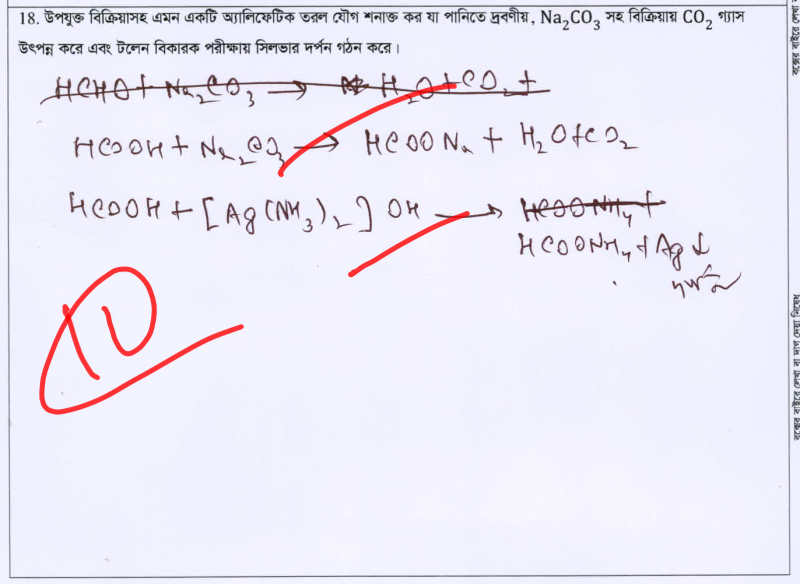 18. উপযুক্ত বিক্রিয়াসহ এমন একটি অ্যালিফেটিক তরল যৌগ শনাক্ত কর যা পানিতে দ্রবণীয়, Na₂CO₃ সহ বিক্রিয়ায় CO₂ গ্যাস
উৎপন্ন করে এবং টলেন বিকারক পরীক্ষায় সিলভার দর্পন গঠন করে।
HCHO + Na₂CO₃ → H₂O + CO₂ +
HCOOH + Na₂CO₃ → HCOONa + H₂O + CO₂
HCOOH + [Ag(NH₃)₂] OH → HCOONH₄ +
HCOONH₄ + Ag ↓
10